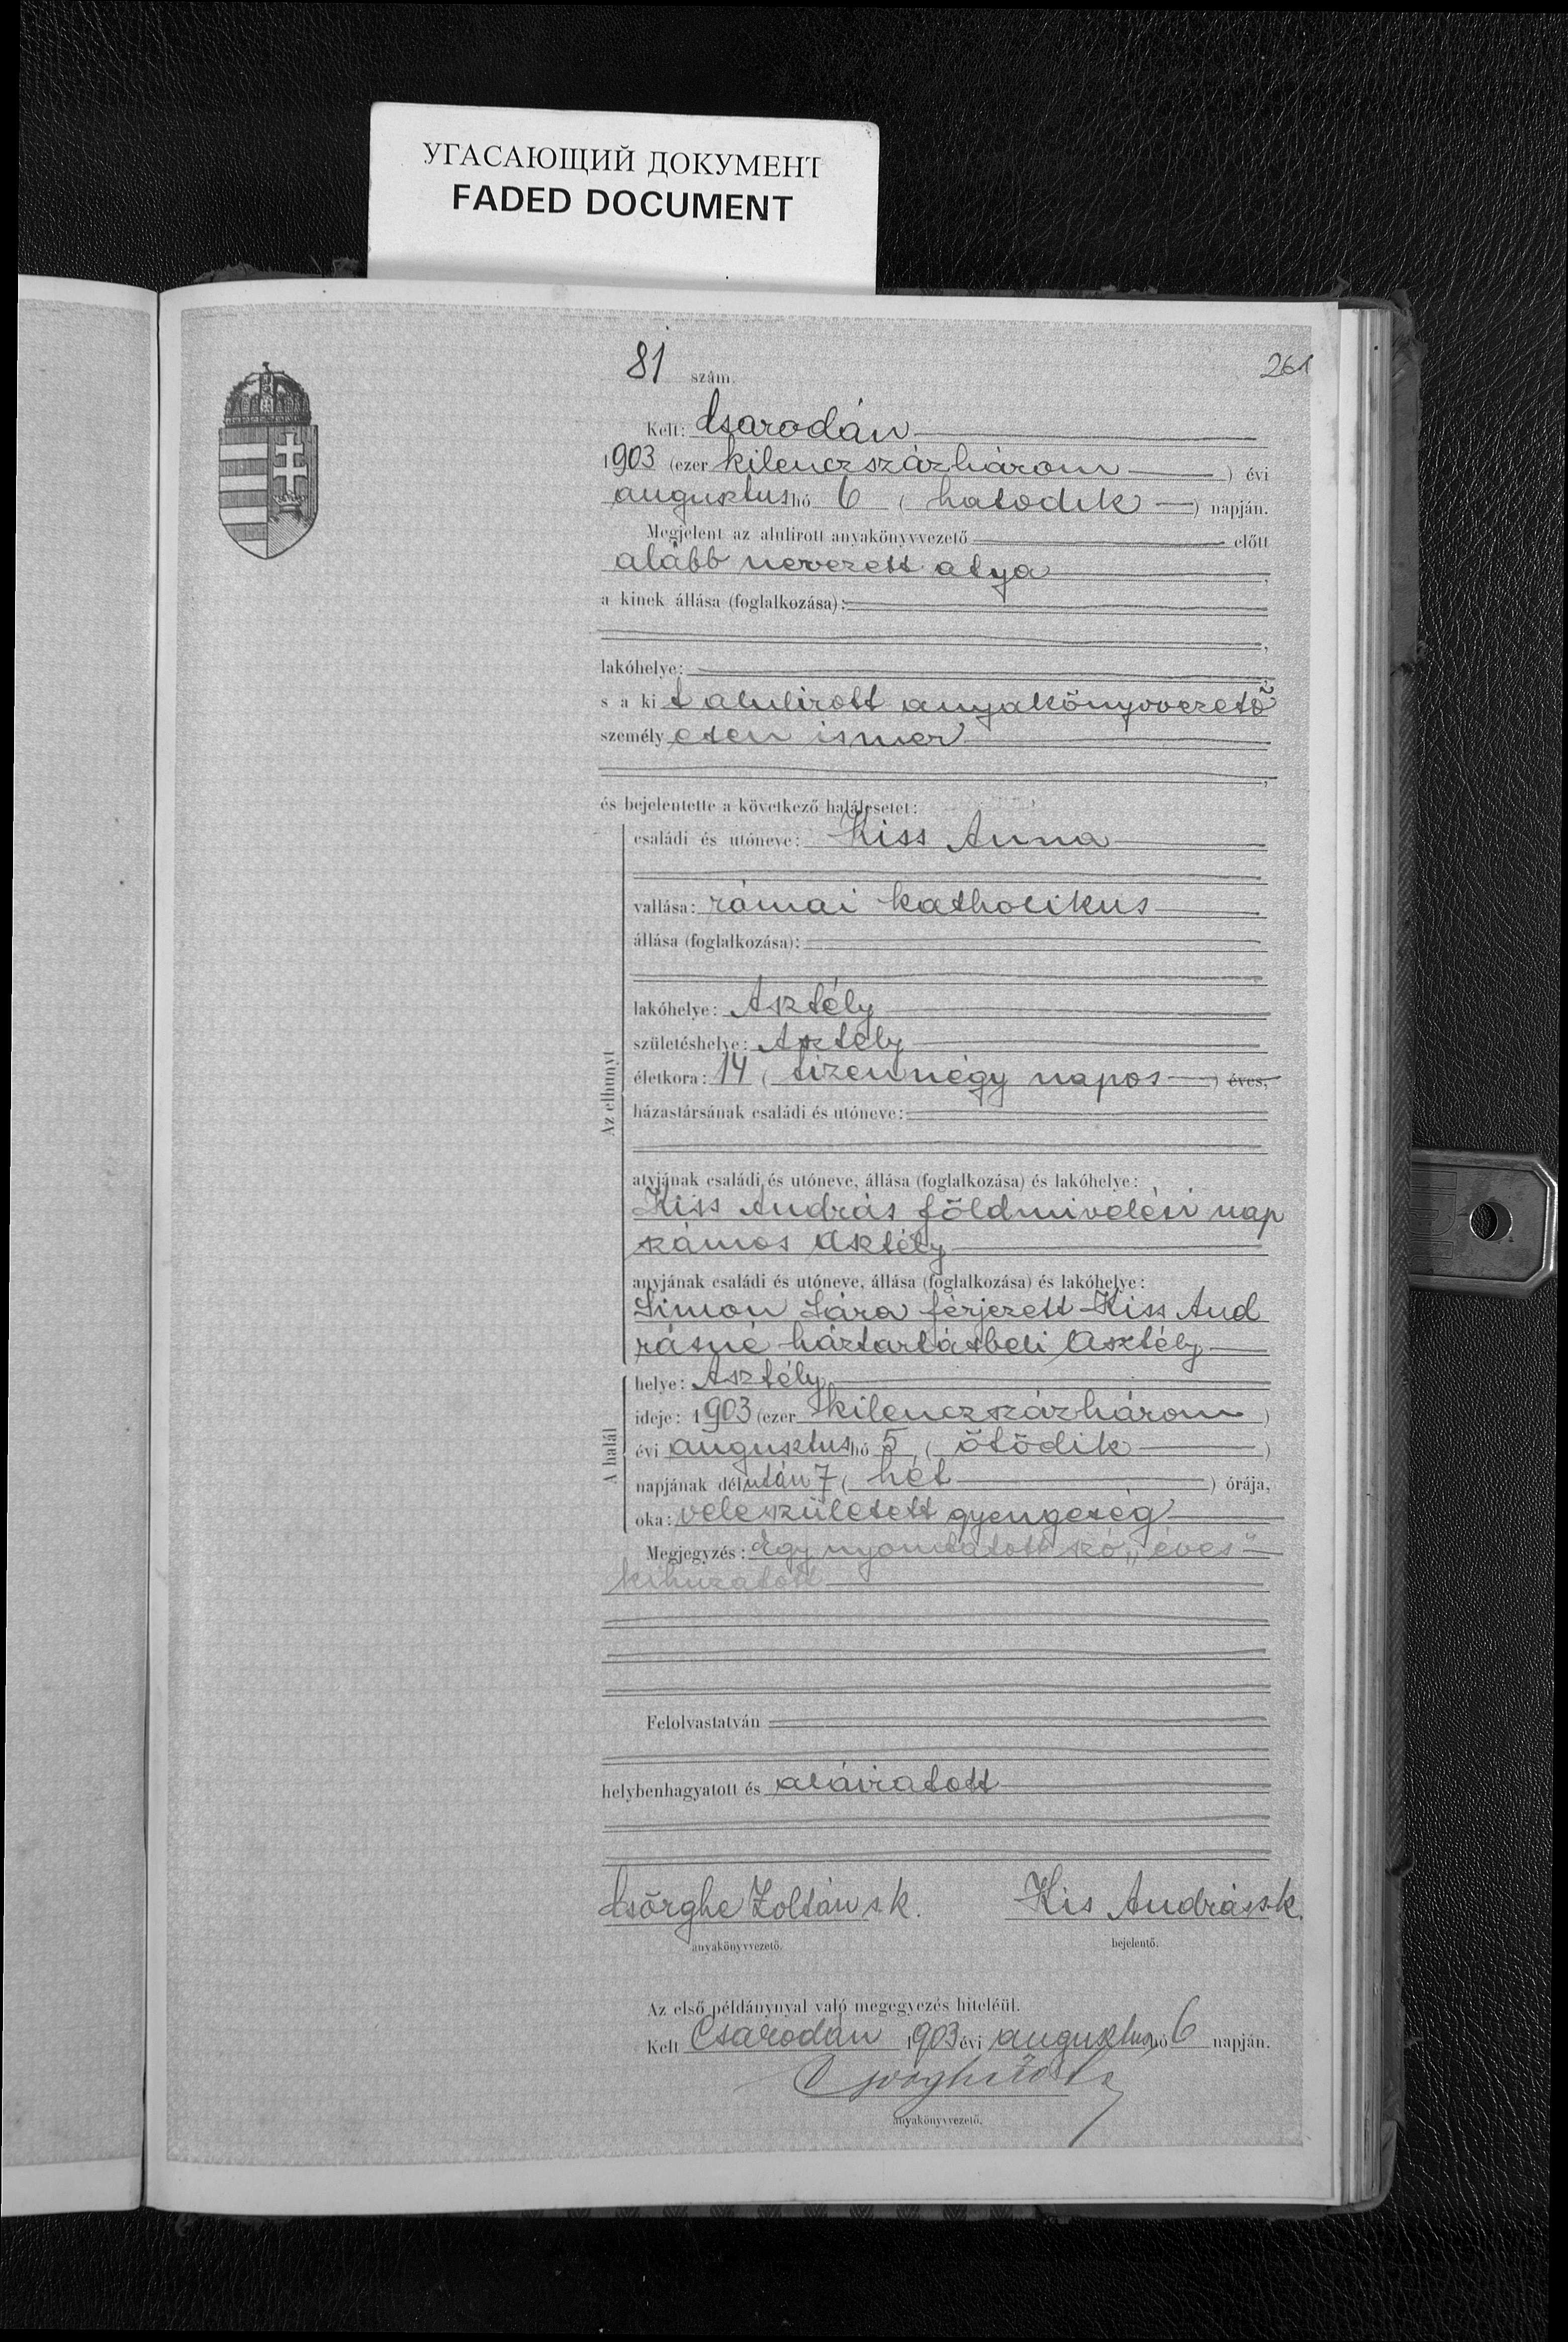 УГАСАЮЩИЙ ДОКУМЕНТ
FADED DOCUMENT
81 szám.
261
Kelt: Csarodán
1903 (ezer kilenczszázhárom) évi
augusztus hó 6 (hatodik) napján.
Megjelent az alulirott anyakönyvvezető előtt
alább nevezett atya,
a kinek állása (foglalkozása):
lakóhelye:
s a kit alulirott anyakönyvvezető
személyesen ismer
és bejelentette a következő halálesetet:
Az elhunyt
családi és utóneve: Kiss Anna
vallása: római katholikus
állása (foglalkozása):
lakóhelye: Asztély
születéshelye: Asztély
életkora: 14 (tizennégy napos) éves,
házastársának családi és utóneve:
atyjának családi és utóneve, állása (foglalkozása) és lakóhelye:
Kiss András földmivelési nap
számos Asztély
anyjának családi és utóneve, állása (foglalkozása) és lakóhelye:
Simon Sára férjezett Kiss And
rásné háztartásbeli Asztély
A halál
helye: Asztély
ideje: 1903 (ezer kilenczszázhárom)
évi augusztus hó 5 (ötödik)
napjának délután 7 (hét) órája,
oka: veleszületett gyengeség
Megjegyzés: Egy nyomtatott szó „éves"
kihuzatott
Felolvastatván
helybenhagyatott és aláiratott
Csörghe Zoltán s.k. Kis András s.k.
anyakönyvvezető. bejelentő.
Az első példánynyal való megegyezés hiteléül.
Kelt Csarodán 1903 évi augusztus hó 6 napján.
anyakönyvvezető.